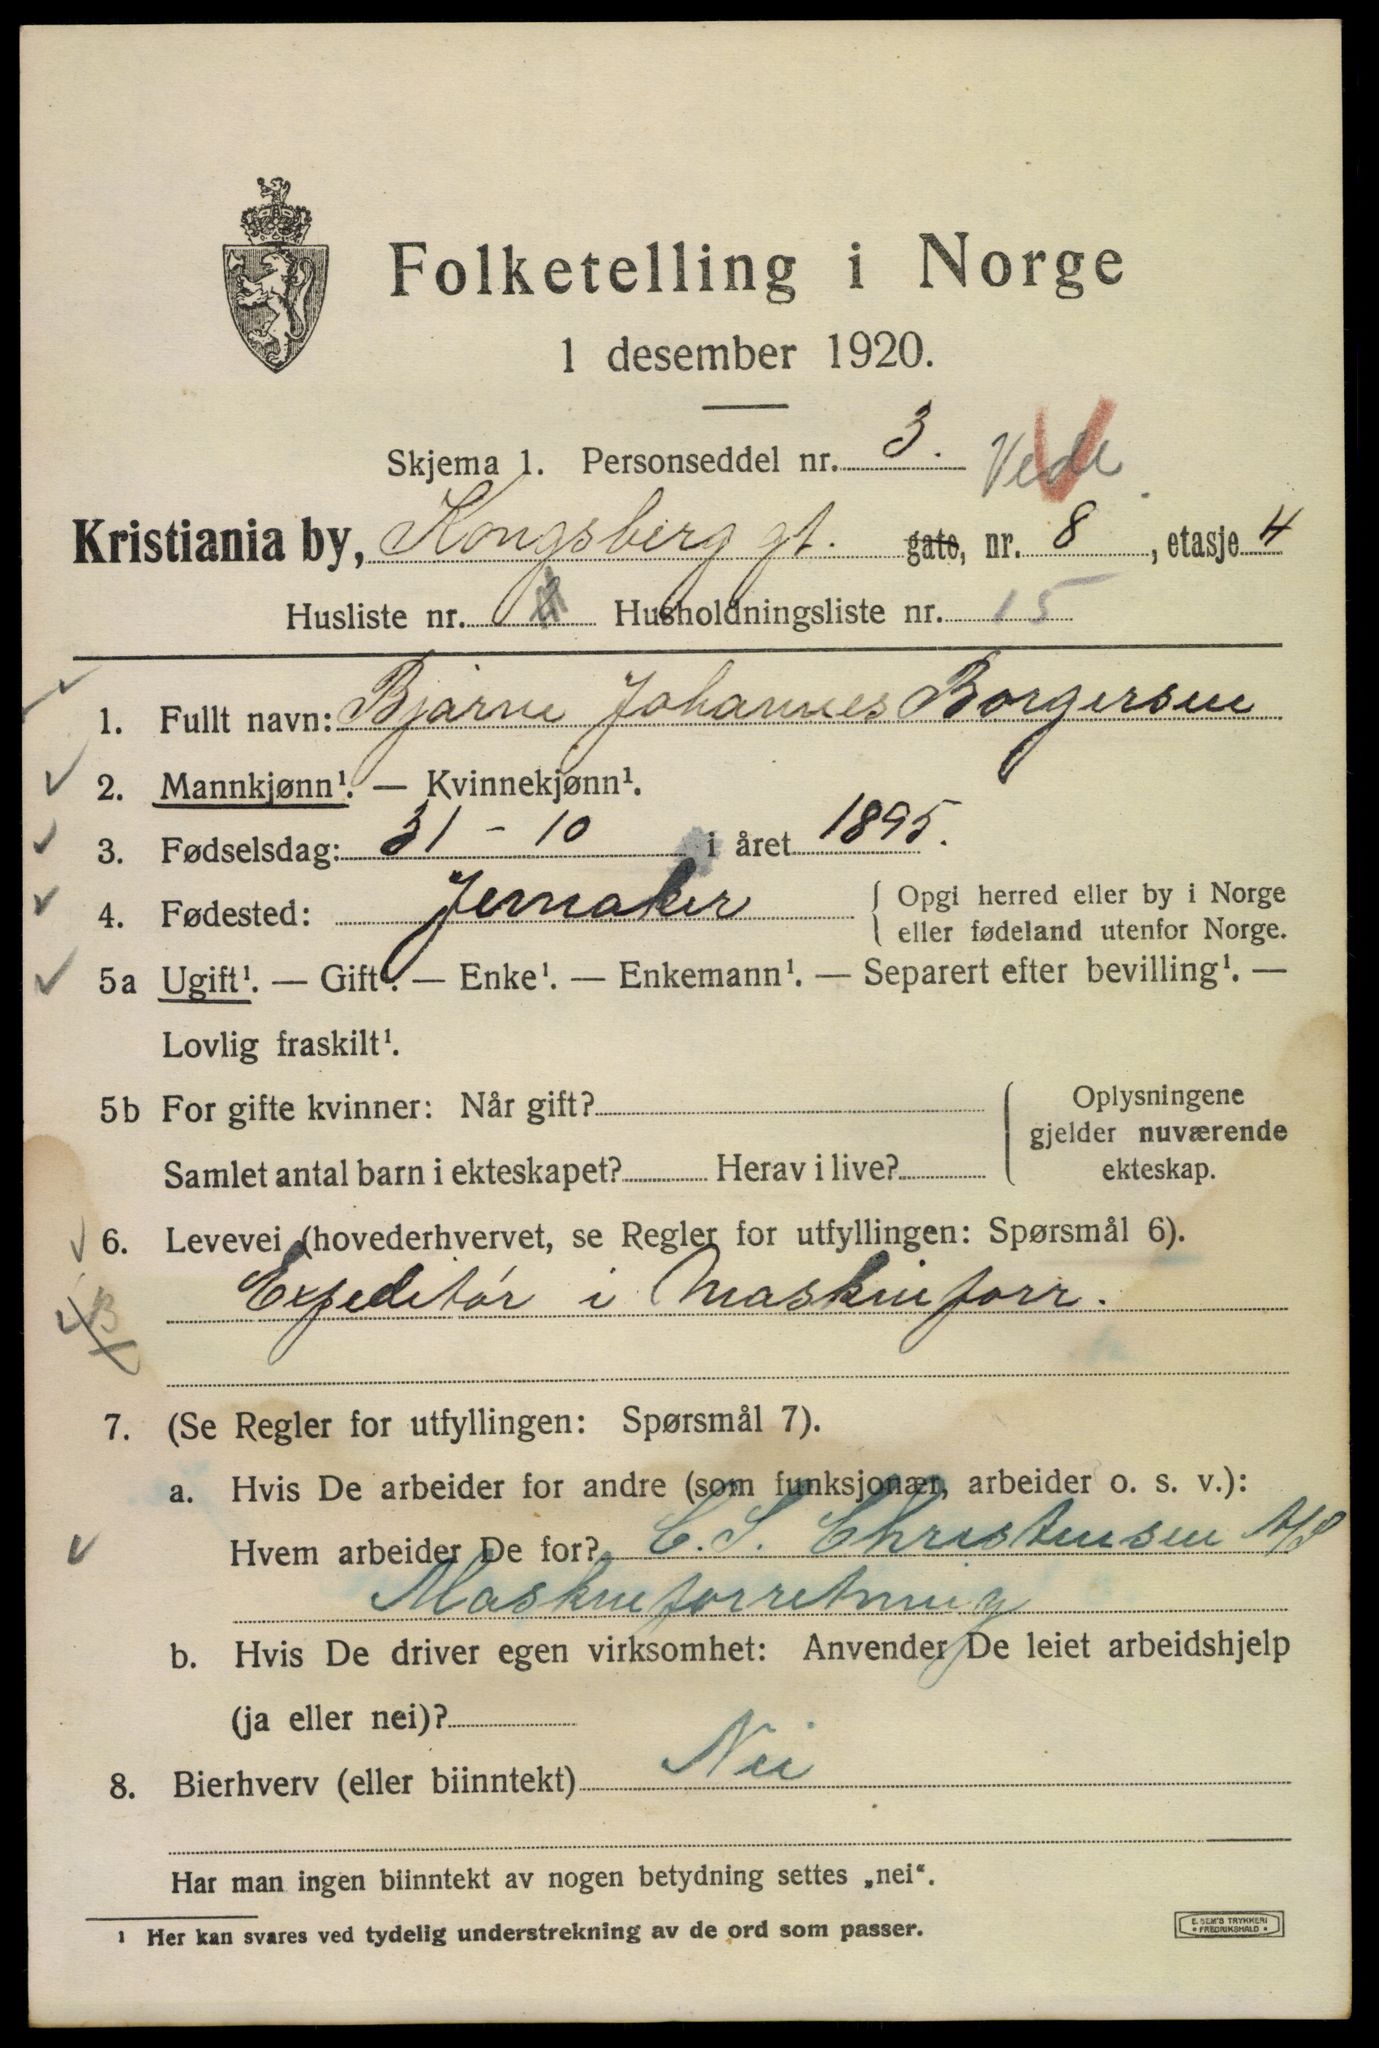 Folketelling i Norge
1 desember 1920.
Skjema 1. Personseddel nr. 3. Vede.
Kristiania by, Kongsberg gt. gate, nr. 8, etasje 4
Husliste nr. Husholdningsliste nr. 15
1. Fullt navn: Bjarne Johannes Borgersen
2. Mannkjønn¹. — Kvinnekjønn¹.
3. Fødselsdag: 31 - 10 i året 1895.
4. Fødested: Jernaker { Opgi herred eller by i Norge
eller fødeland utenfor Norge.
5a Ugift¹. — Gift¹. — Enke¹. — Enkemann¹. — Separert efter bevilling¹. —
Lovlig fraskilt¹.
5b For gifte kvinner: Når gift? { Oplysningene
gjelder nuværende
Samlet antal barn i ekteskapet? Herav i live? ekteskap.
6. Levevei (hovederhvervet, se Regler for utfyllingen: Spørsmål 6).
Expeditør i Maskinforr.
B
7. (Se Regler for utfyllingen: Spørsmål 7).
a. Hvis De arbeider for andre (som funksjonær, arbeider o. s. v.):
Hvem arbeider De for? C. S. Christensen A/S
Maskinforretning
b. Hvis De driver egen virksomhet: Anvender De leiet arbeidshjelp
(ja eller nei)?
8. Bierhverv (eller biinntekt) Nei
Har man ingen biinntekt av nogen betydning settes „nei“.
¹ Her kan svares ved tydelig understrekning av de ord som passer.
E. SEM'S TRYKKERI
* FREDRIKSHALD *